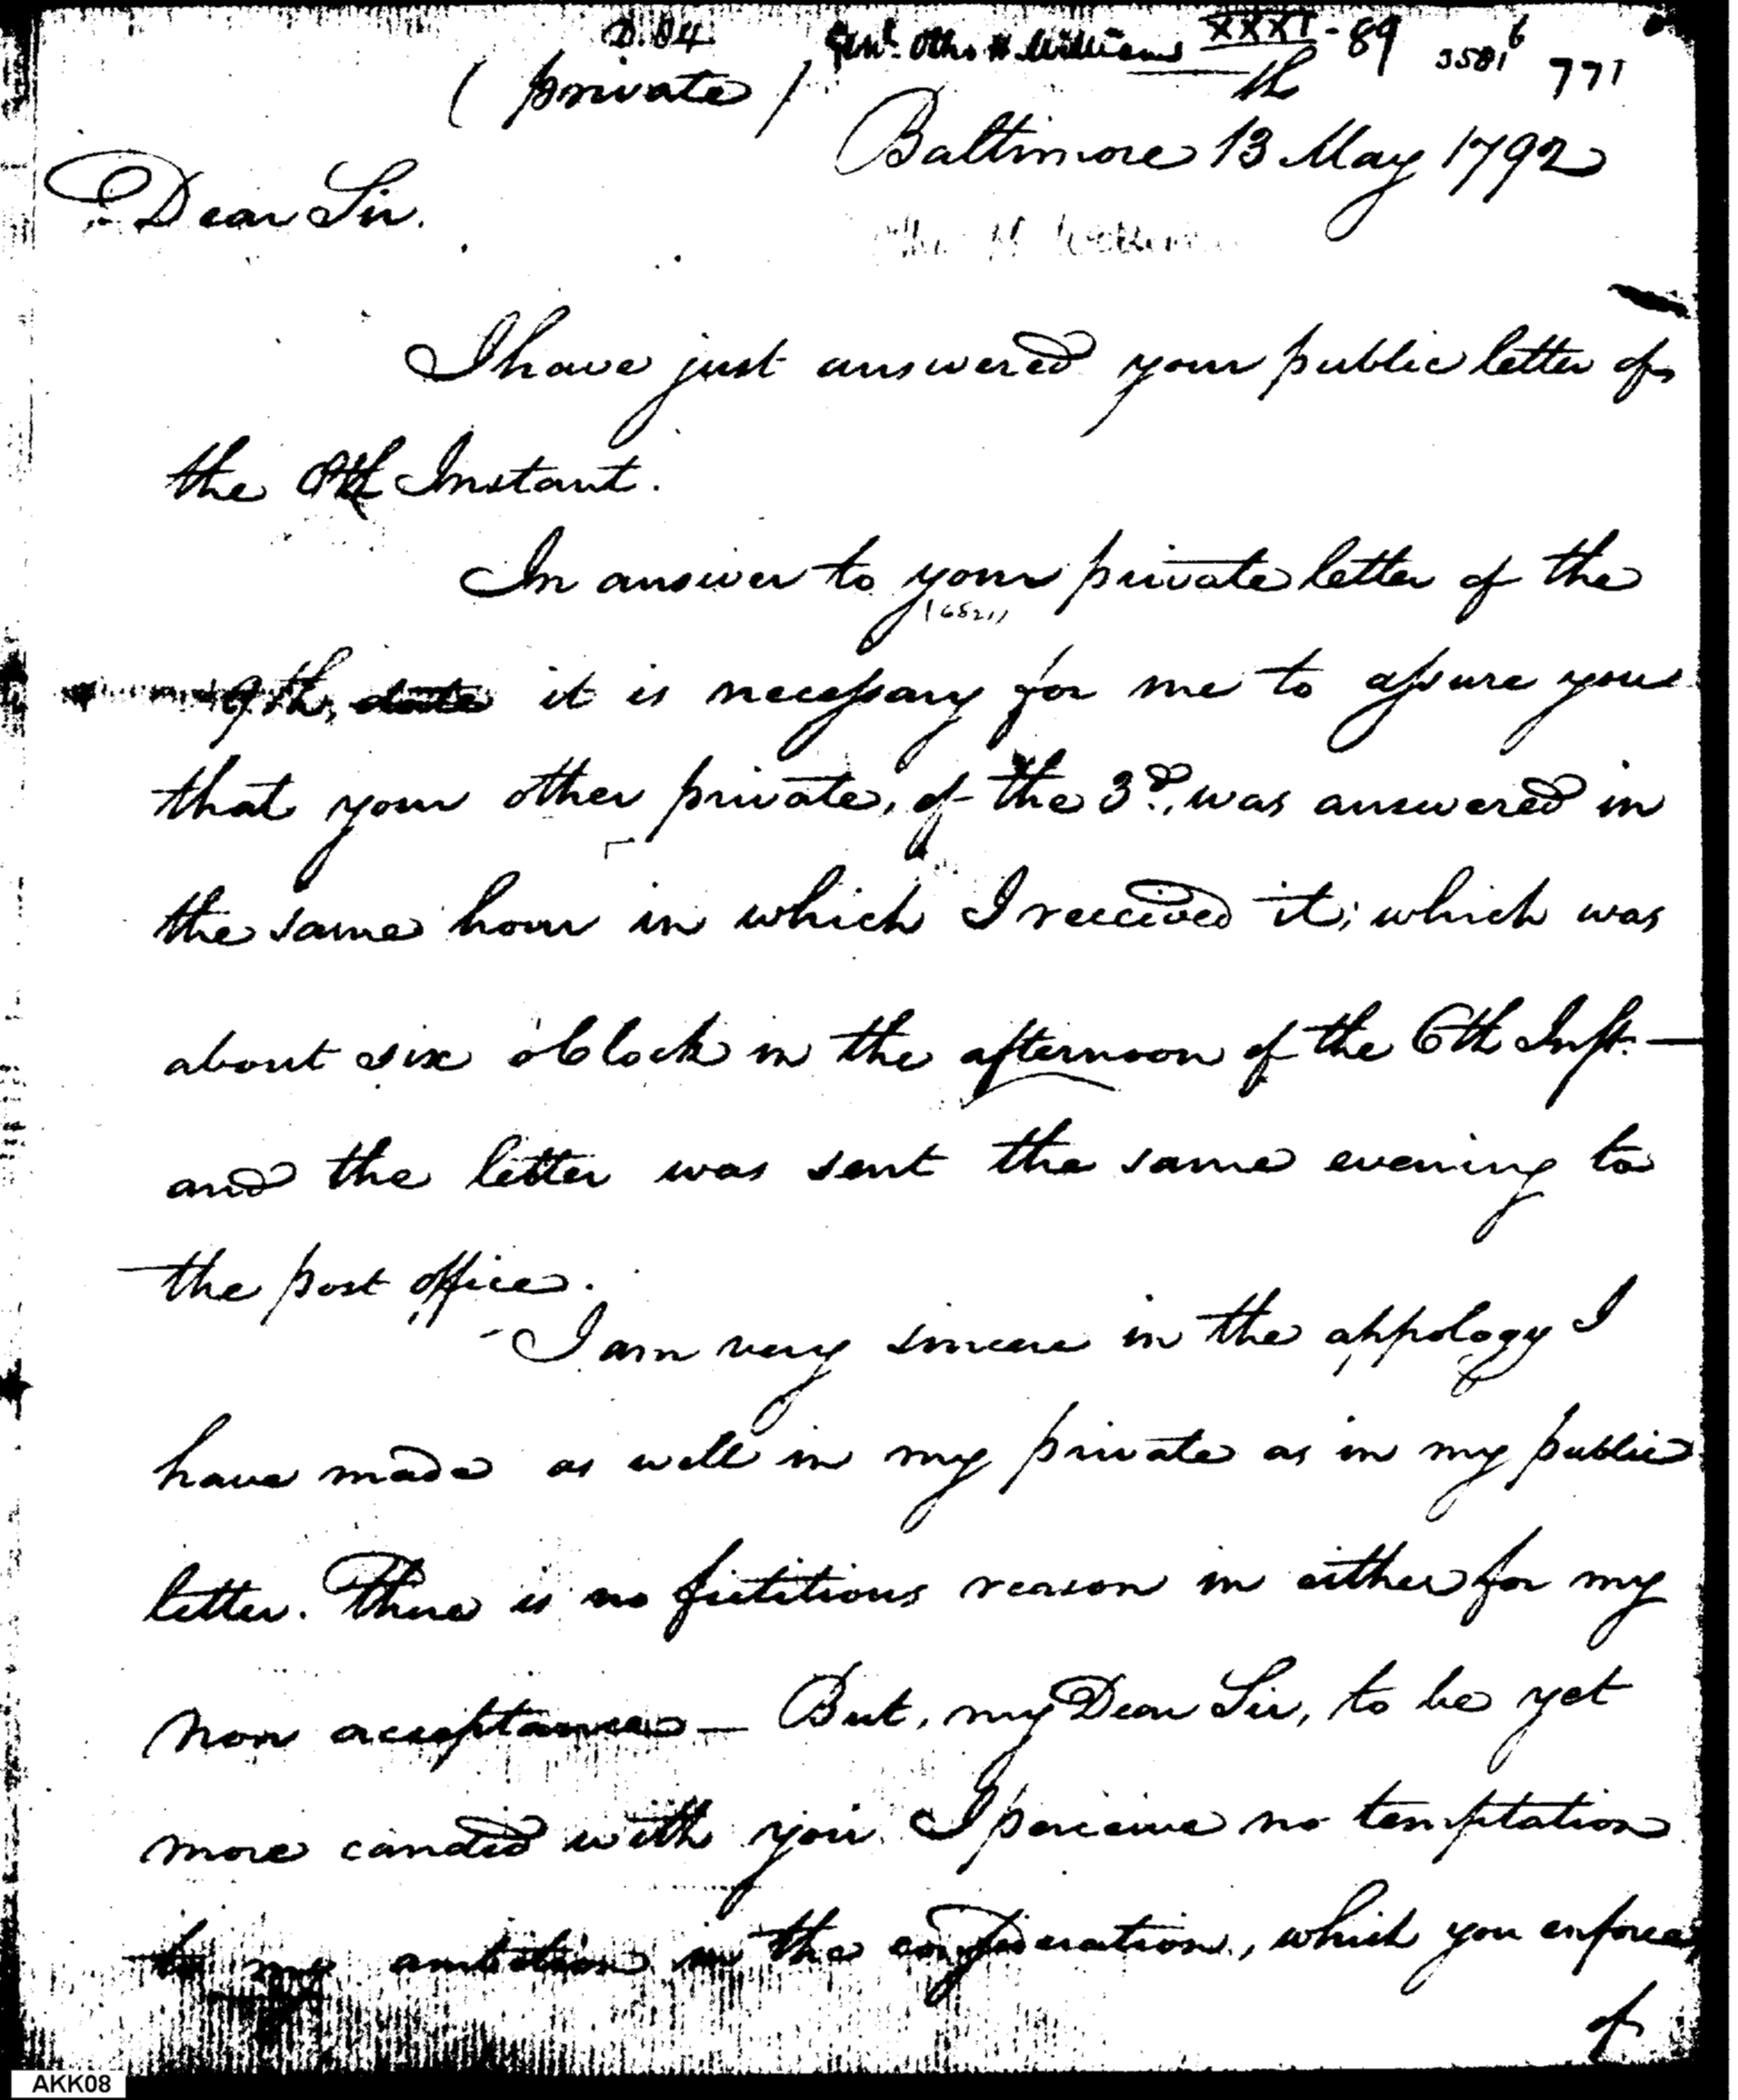 D. 84 Genl. Otho H. Williams XXXI - 89 3581 6 771
(private)
Baltimore 13th May 1792
Dear Sir.
Otho H Williams
I have just answered your public letter of
the Instant.
In answer to your private letter of the
9th, it is necessary for me to assure you
that your other private, of the 3d., was answered in
the same hour in which I received it; which was
about six o'Clock in the afternoon of the 6th Inst. —
and the letter was sent the same evening to
the post office.
I am very sincere in the appology I
have made as well in my private as in my public
letter. There is no fictitious reason in either for my
non acceptance — But, my Dear Sir, to be yet
more candid with you, I perceive no temptation
to my ambition in the consideration, which you enforce,
of
AKK08